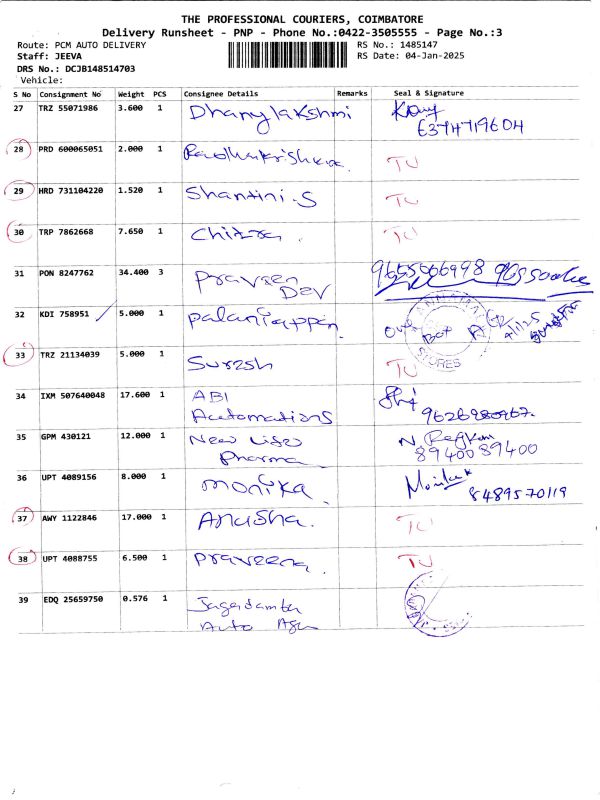 THE PROFESSIONAL COURIERS, COIMBATORE
Delivery Runsheet - PNP - Phone No.:0422-3505555 - Page No.:3
Route: PCM AUTO DELIVERY RS No.: 1485147
Staff: JEEVA RS Date: 04-Jan-2025
DRS No.: DCJB148514703
Vehicle:
S No Consignment No Weight PCS Consignee Details Remarks Seal & Signature
27 TRZ 55071986 3.600 1 Dhanylakshmi
6374719604
28 PRD 600065051 2.000 1 Radhakrishnan. TU
29 HRD 731104220 1.520 1 Shantini.S TU
30 TRP 7862668 7.650 1 Chitra. TU
31 PON 8247762 34.400 3 Praveen
Dev
32 KDI 758951 5.000 1 Palaniappan.
STORES
33 TRZ 21134039 5.000 1 Suresh TU
34 IXM 507640048 17.600 1 ABI
Automations
35 GPM 430121 12.000 1 New Life
Pharma
89400 89400
36 UPT 4089156 8.000 1 Monika.
8489570119
37 AWY 1122846 17.000 1 Anusha. TU
38 UPT 4088755 6.500 1 Praveena. TU
39 EDQ 25659750 0.576 1 Jagadamba
Auto Agn